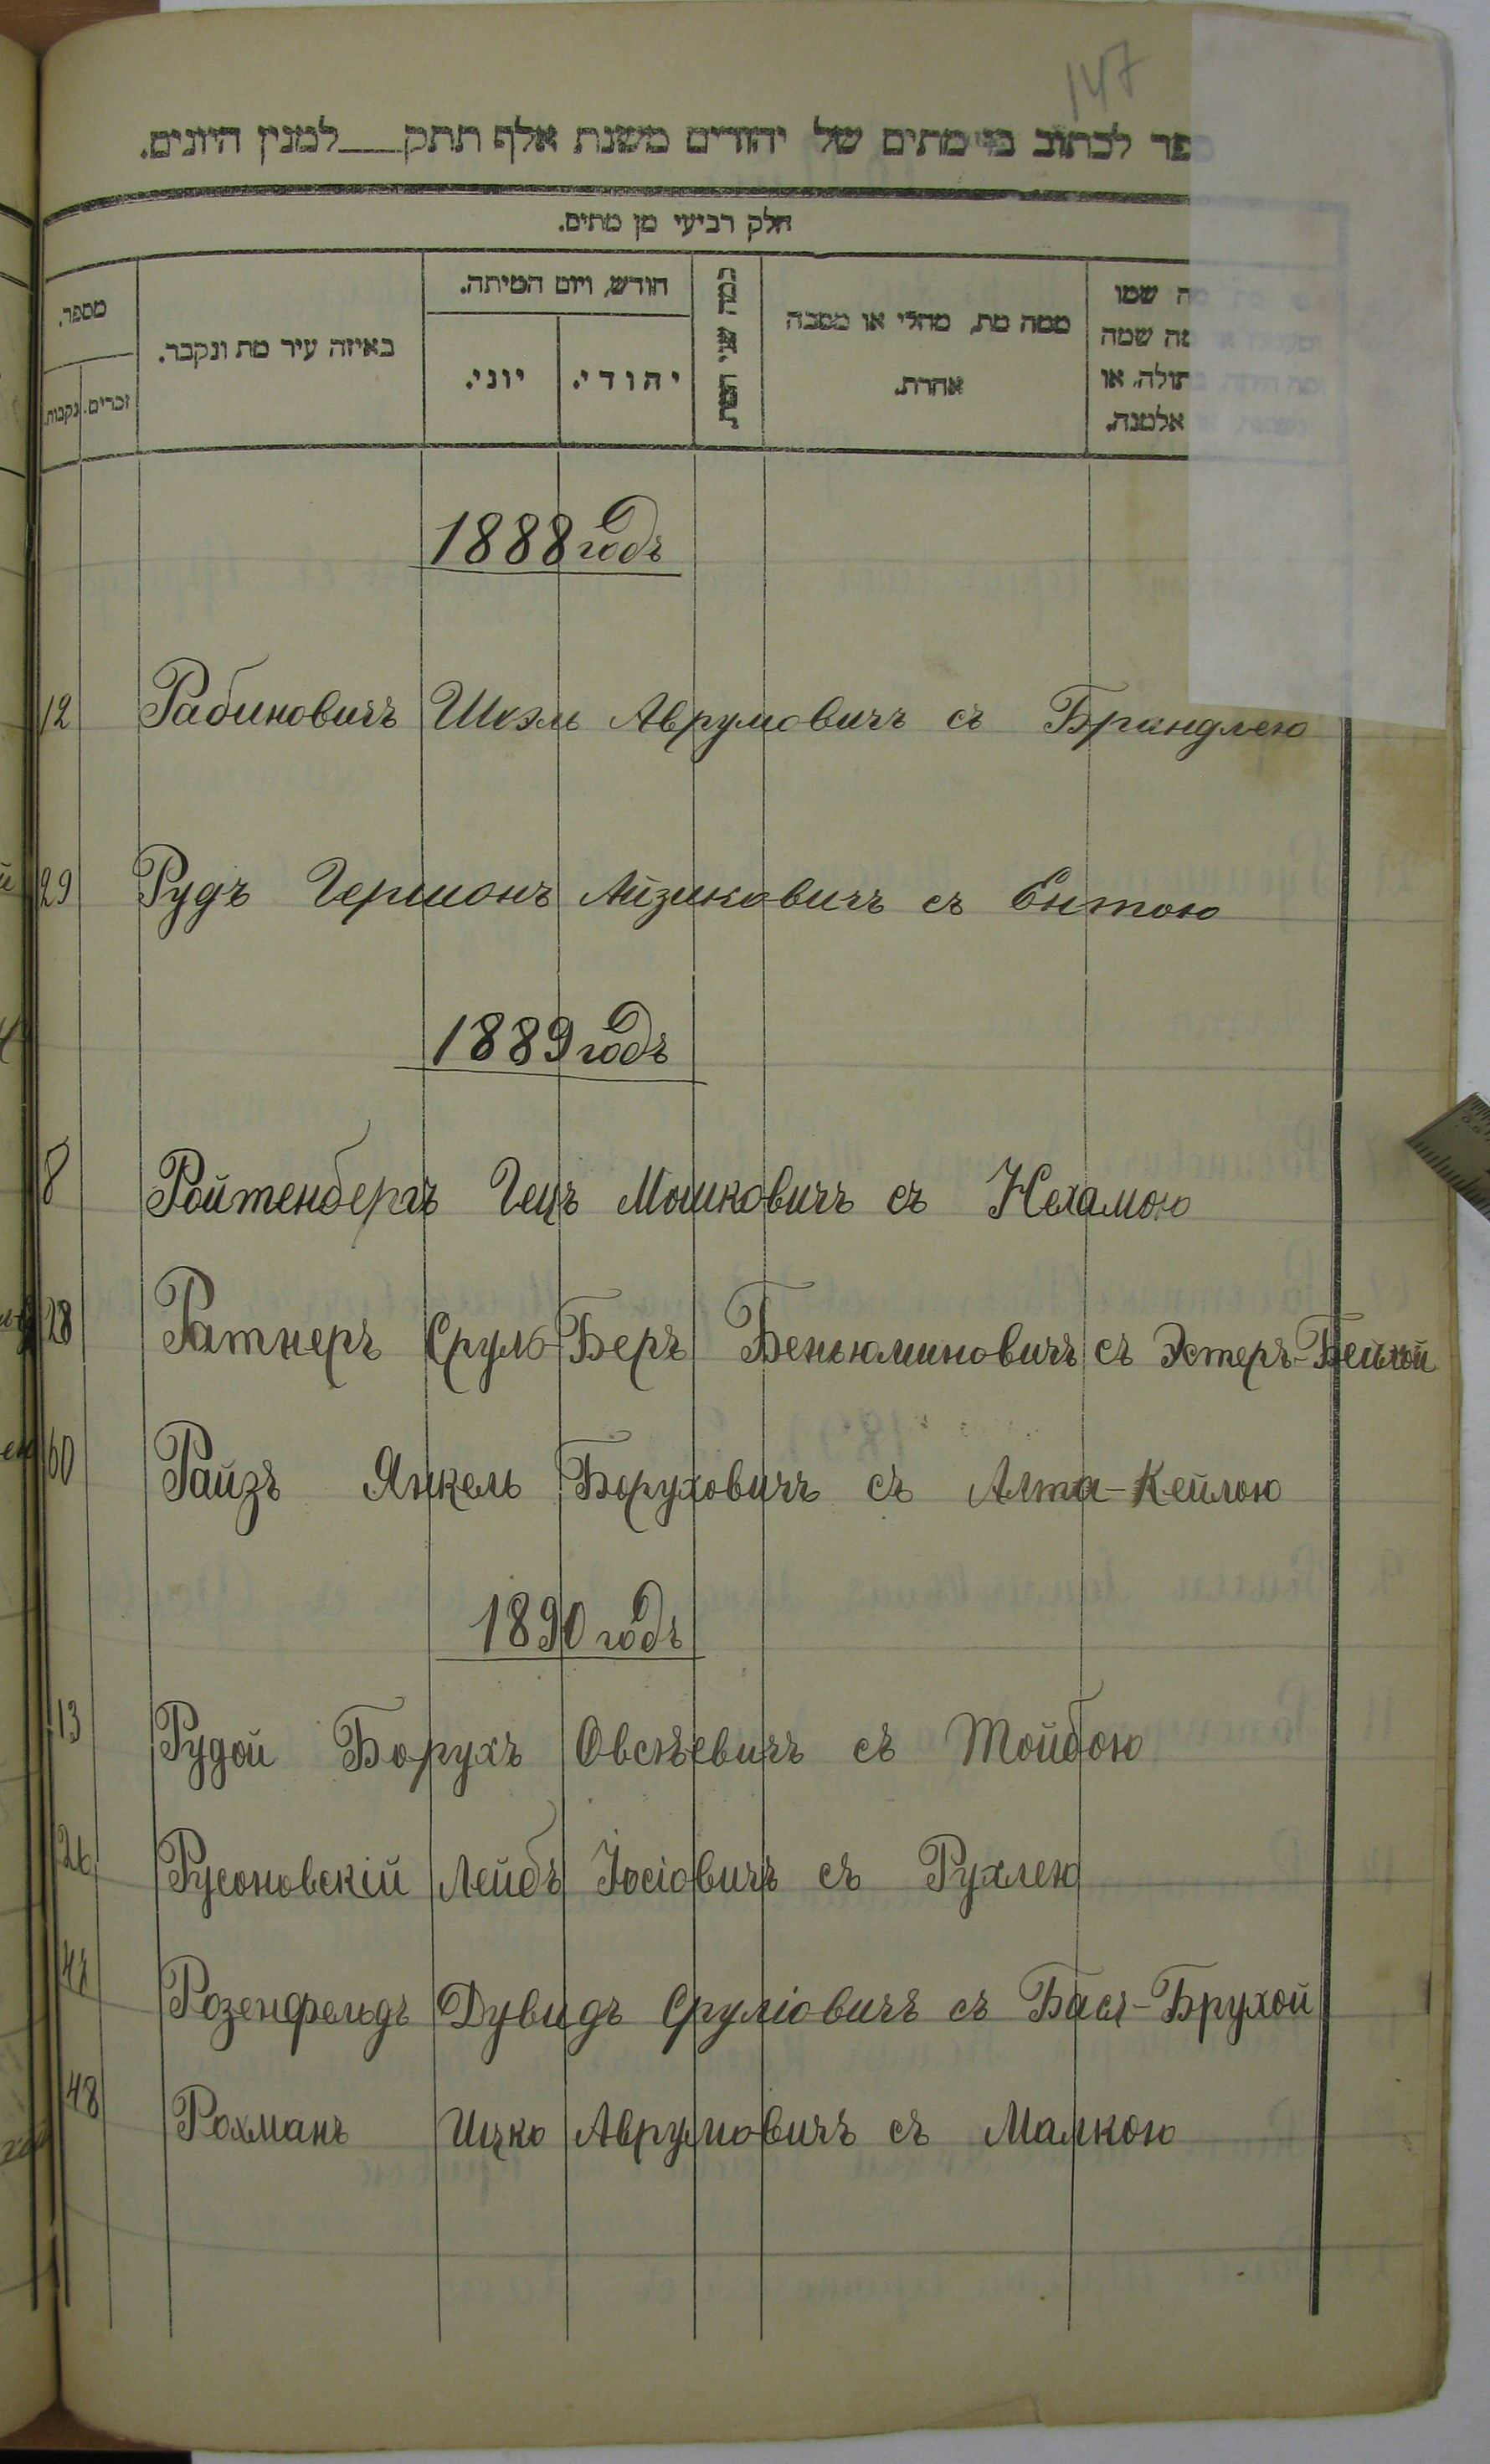 147
ספר לכתוב בו מתים של יהודים משנת אלף תתק___למנין היונים.
חלק רביעי מן מתים.
מספר.
זכרים.
נקבות.
באיזה עיר מת ונקבר.
חודש, ויום המיתה.
יוני.
יהודי.
כמה שני המת.
ממה מת, מחלי או מסבה
אחרת.
מה שמו
מה שמה
בתולה, או
אלמנה.
1888 годъ
12 Рабиновичъ Шоэль Аврумовичъ съ Брандлею
29 Рудъ Гершонъ Айзиковичъ съ Ентою
1889 годъ
8 Ройтенбергъ Гецъ Мошковичъ съ Нехамою
28 Ратнеръ Сруль-Беръ Беньюминовичъ съ Эстеръ-Бейлой
60 Райзъ Янкель Боруховичъ съ Алта-Кейлою
1890 годъ
13 Рудой Борухъ Овсѣевичъ съ Тойбою
26 Русоновскій Лейбъ Іосіовичъ съ Рухлею
41 Розенфельдъ Дувидъ Сруліовичъ съ Бася-Брухой
48 Рохманъ Ицко Аврумовичъ съ Малкою